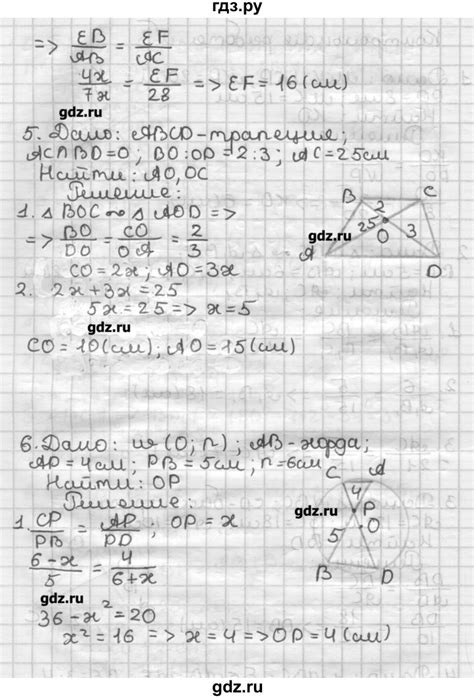 гдз.ру
=> EB/AB = EF/AC
4x/7x = EF/28 => EF = 16 (см)
gdz.ru
gdz.ru
5. Дано: ABCD-трапеция;
AC∩BD=O; BO:OD=2:3; AC=25см
Найти: AO, OC
gdz.ru
Решение:
1. △BOC ∾ △AOD =>
=> BO/DO = CO/OA = 2/3
CO = 2x; AO = 3x
B
C
2
25
3
O
A
D
gdz.ru
2. 2x+3x=25
5x = 25 => x = 5
gdz.ru
CO = 10 (см); AO = 15 (см)
gdz.ru
6. Дано: w (O; r), AB-хорда;
AP = 4см; PB = 5см; r = 6см
Найти: OP
gdz.ru
Решение:
1. CP/PB = AP/PD, OP = x
(6-x)/5 = 4/(6+x)
C
A
4
P
O
5
B
D
gdz.ru
gdz.ru
36 - x² = 20
x² = 16 => x = 4 => OP = 4 (см)
gdz.ru
gdz.ru